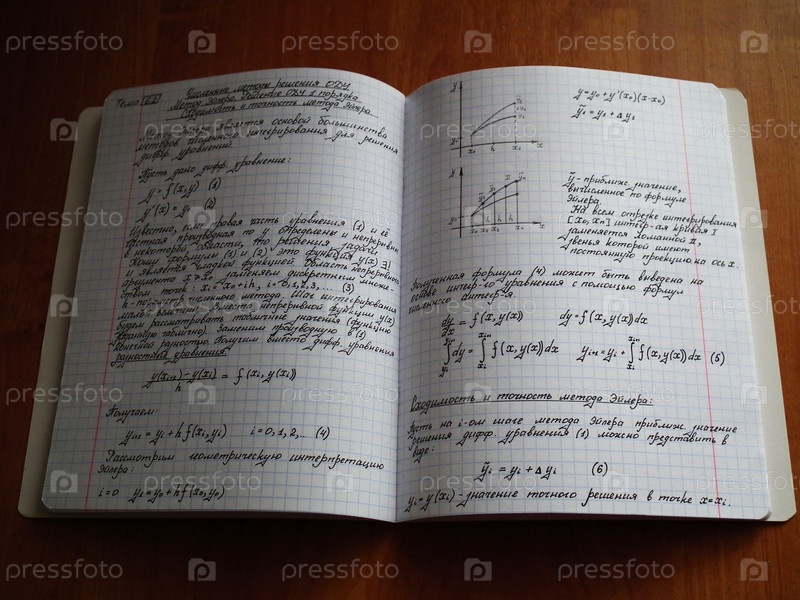 Тема 21
Численные методы решения ОДУ
Метод Эйлера. Решение ОДУ 1 порядка
Сходимость и точность метода Эйлера
Метод Эйлера является основой большинства
методов численного интегрирования для решения
дифф. уравнений.
Пусть дано дифф. уравнение:
y' = f(x,y) (1)
y(x₀) = y₀ (2)
Известно, если правая часть уравнения (1) и её
частная производная по y определены и непрерывн
в некоторой области, то решения задачи
формулы (1) и (2) это функция y(x) ∃!
и является гладкой функцией. Область непрерывного
аргумента x заменяем дискретным множе-
ством точек: xᵢ = x₀ + ih, i = 0,1,2,3,... (3)
h - параметр численного метода. Шаг интегрирования
малой величины. Вместо непрерывной функции y(x)
будем рассматривать табличные значения (функцию
заданную таблично). Заменим производную в (1)
конечной разностью. Получим вместо дифф. уравнения
разностные уравнения
(y(xᵢ₊₁) - y(xᵢ))/h = f(xᵢ, y(xᵢ))
Получаем:
yᵢ₊₁ = yᵢ + h f(xᵢ, yᵢ) i = 0,1,2,... (4)
Рассмотрим геометрическую интерпретацию
Эйлера:
i = 0 y₁ = y₀ + h f(x₀, y₀)
y = y₀ + y'(x₀)(x - x₀)
ỹᵢ = yᵢ + Δyᵢ
y
x₀ h xᵢ x
y
h h h
x₀ xₙ x
ỹ - приближ. значение,
вычисленное по формуле
Эйлера.
На всем отрезке интегрирования
[x₀, xₙ] интегр-ая кривая I
заменяется ломанной II,
звенья которой имеют
постоянную проекцию на ось x.
Полученная формула (4) может быть выведена на
основе интегр-го уравнения с помощью формул
численного интегр-я.
dy/dx = f(x, y(x)) dy = f(x, y(x)) dx
∫dy = ∫f(x, y(x)) dx yᵢ₊₁ = yᵢ + ∫f(x, y(x)) dx (5)
Сходимость и точность метода Эйлера:
Пусть на i-ом шаге метода Эйлера приближ. значение
решения дифф. уравнения (1) можно представить в
виде:
ỹᵢ = yᵢ + Δyᵢ (6)
yᵢ = y(xᵢ) - значение точного решения в точке x = xᵢ.
pressfoto